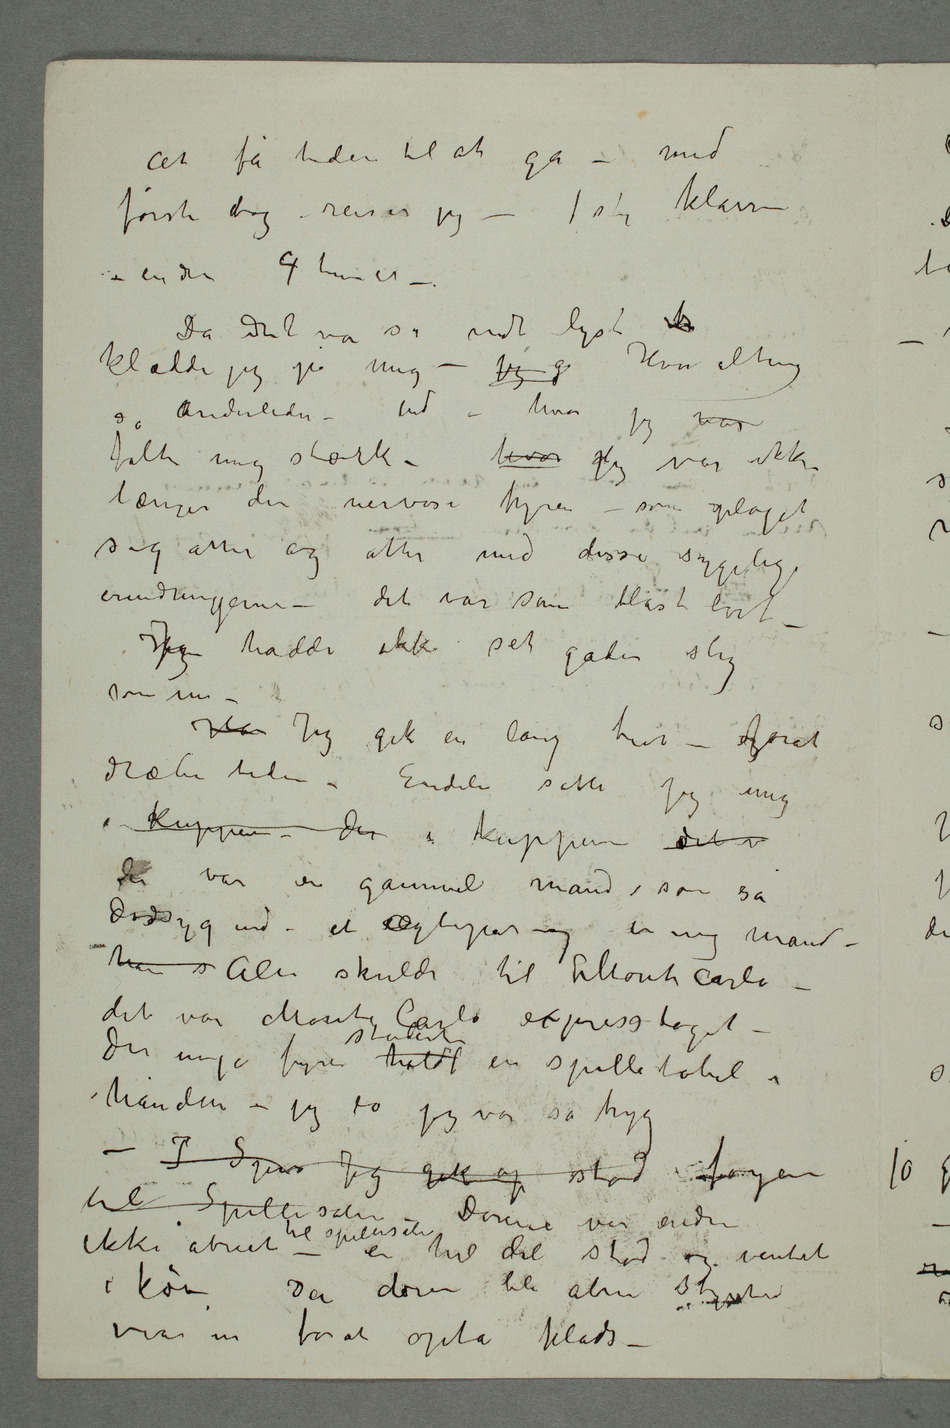 at få tiden til at gå – med
første tog reiser jeg –
– endnu 4 timer –
Da det var så vidt lyst
klædde jeg på mig – jeg g Hvor alting
så anderledes – ud – hvor jeg var
følte mig stærk – hvor Jeg var ikke
længer den nervøse fyren – som plaget
sig atter og atter med disse sygelige
erindringerne – det var som blåst bort –
Jeg hadde ikke set gaden slig
som nu –
Jeg gik en lang tur – forat
dræbe tiden – Endeli satte jeg mig
i Kuppen – der i kuppen det v
der var en gammel mand, som så
dødsyg ud – et ægtepar og en ung mand –
han s Alle skulde til Monte Carlo –
det var Monte Carlo expresstoget –
Den unge fyren studerte holdt en spilletabel i
hånden – jeg lo jeg var så tryg
– I Jeg gik op stod i foyeren
til Spillesalen – Dørene var endnu
ikke åbnet – til spillesalen en hel del stod og ventet
i kø – Da døren ble åbnet styrtet
vi ind for at opta plads –
10